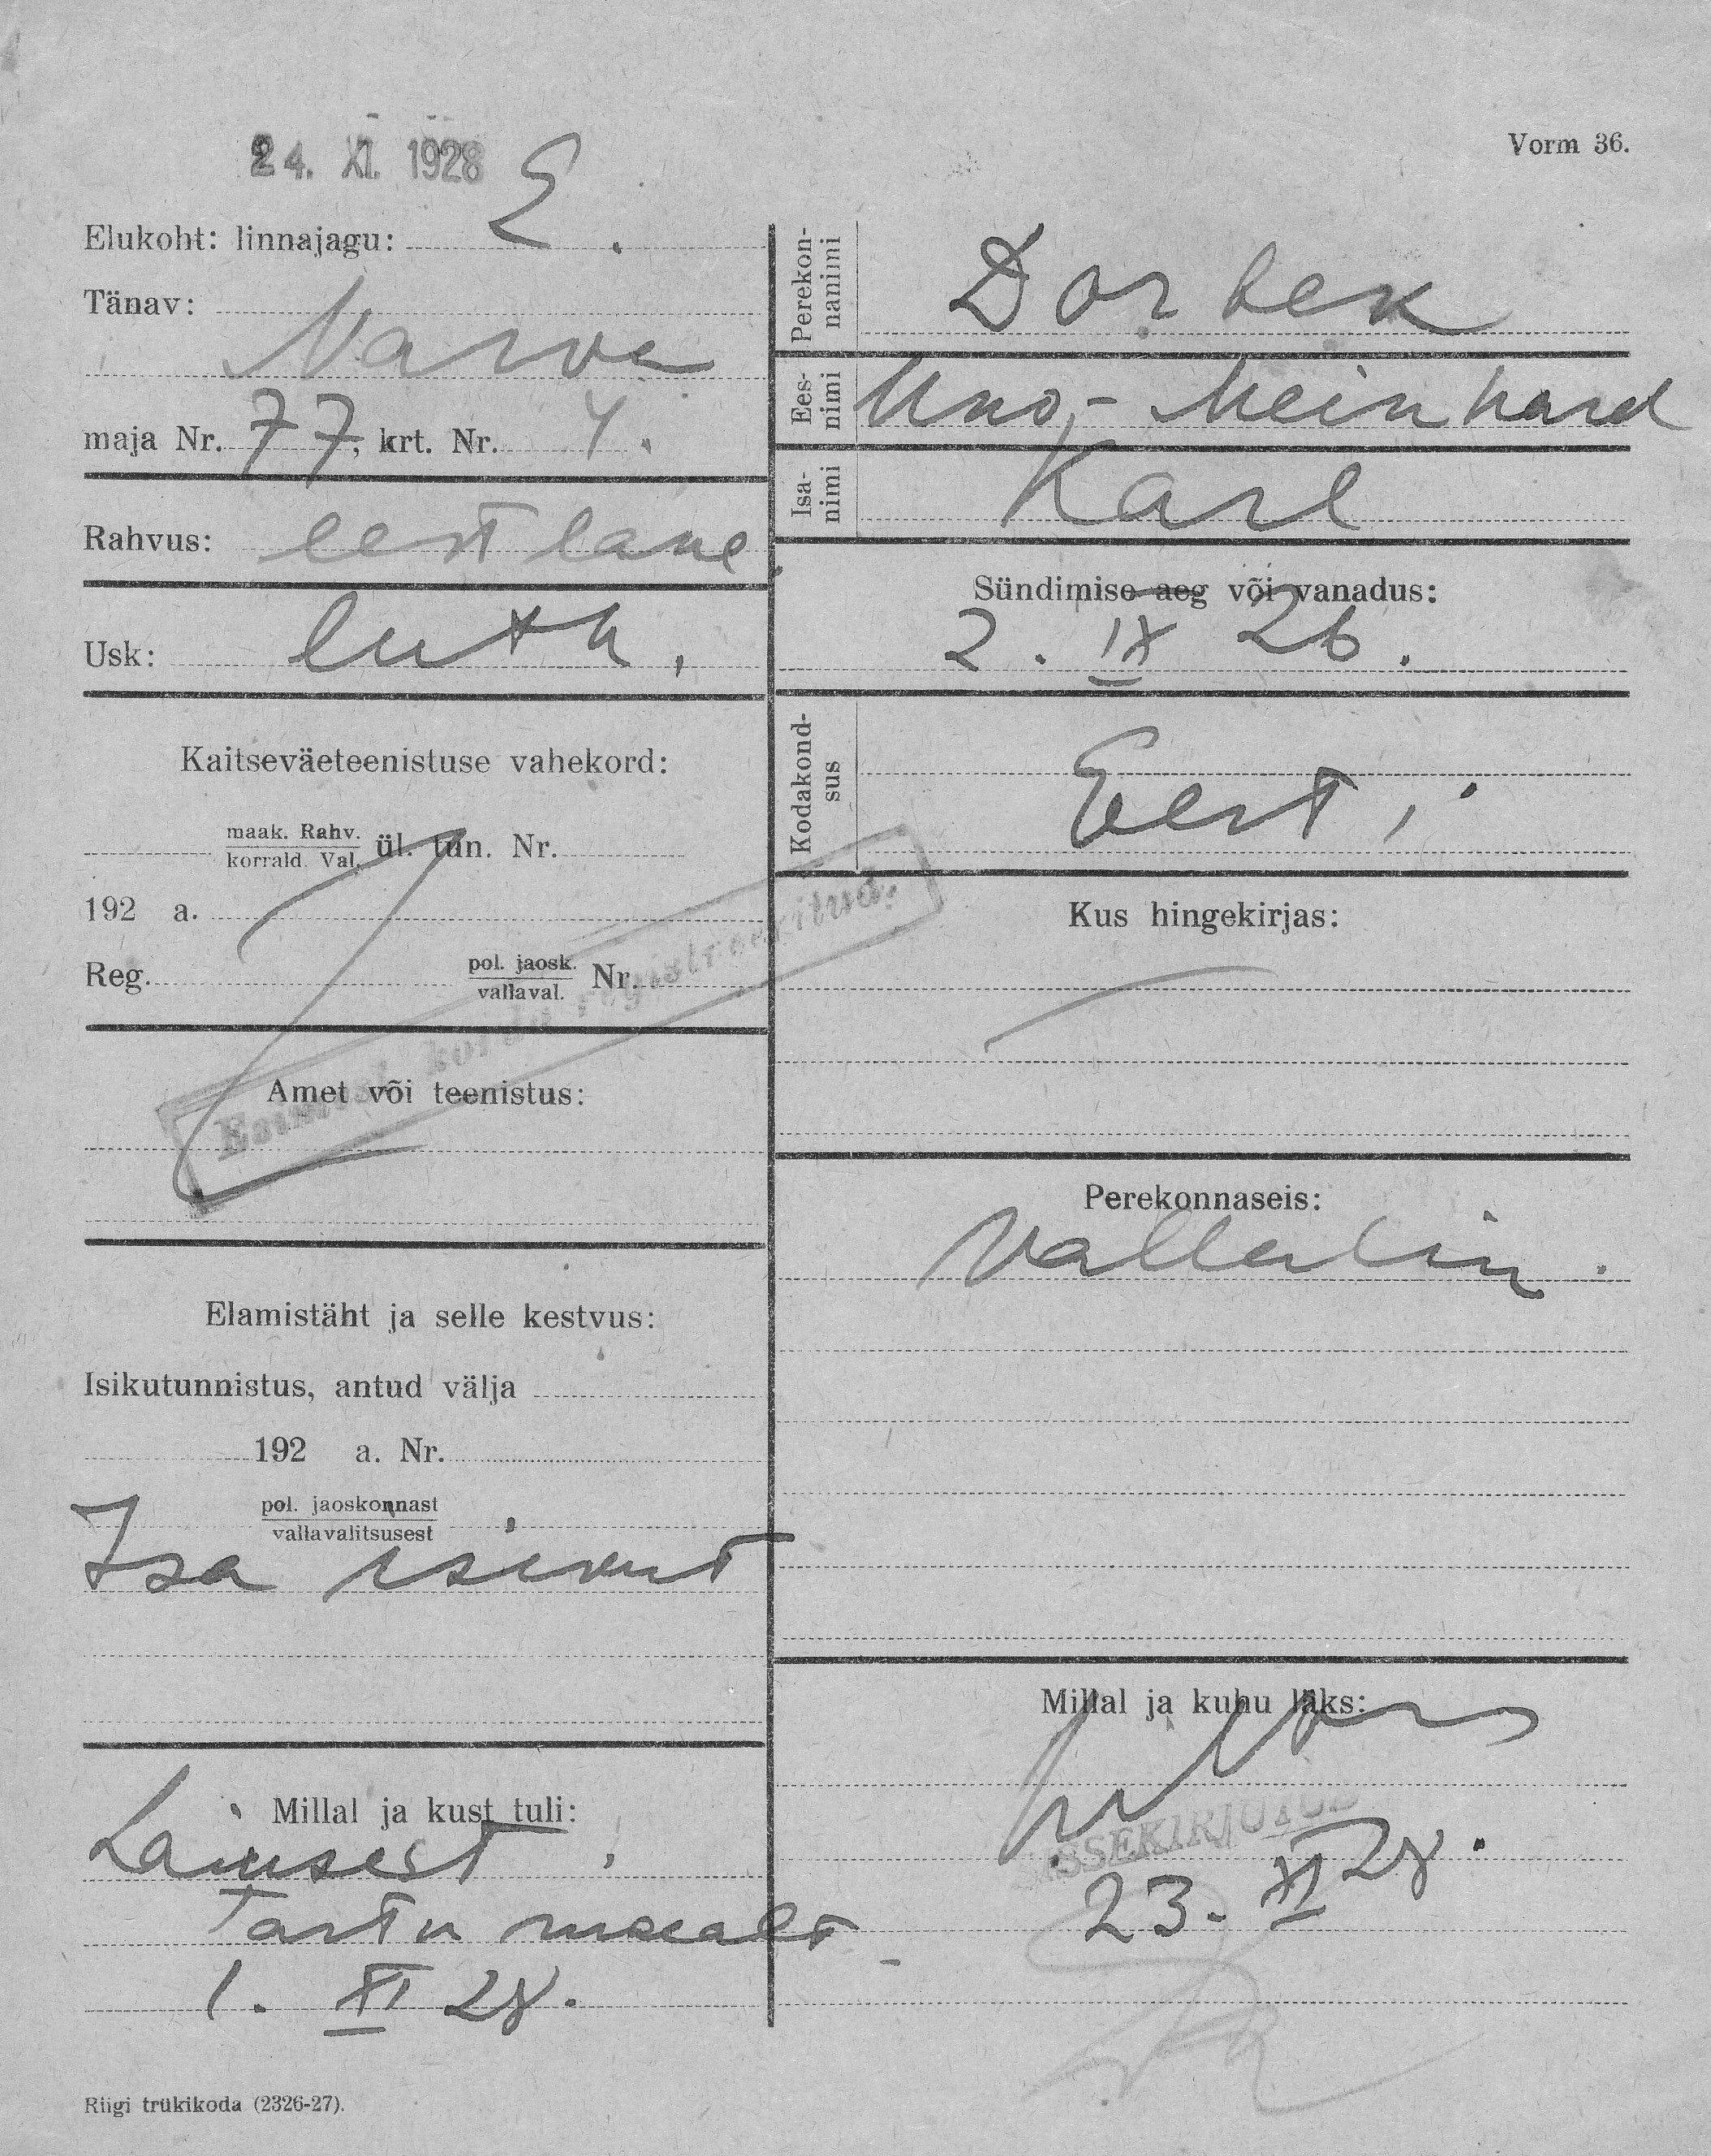 24. XI. 1928
Vorm 36.
Elukoht: linnajagu: E.
Tänav:
Narva
maja Nr. 77, krt. Nr. 4.
Rahvus: eestlane.
Usk: luth.
Kaitseväeteenistuse vahekord:
maak. Rahv.
korrald. Val. ül. tun. Nr.
192 a.
Reg. pol. jaosk. Nr.
vallaval.
Esimest korda registreeritud.
Amet või teenistus:
Elamistäht ja selle kestvus:
Isikutunnistus, antud välja
192 a. Nr.
pol. jaoskonnast
vallavalitsusest
Isa
Millal ja kust tuli:
Tartu maealt
1. XI 28.
Riigi trükikoda (2326-27).
Perekon-
nanimi
Dorbek
Ees-
nimi
Uno-Meinhard
Isa-
nimi
Karl
Sündimise aeg või vanadus:
2. IX 26.
Kodakond-
sus
Eesti
Kus hingekirjas:
Perekonnaseis:
Vallalin.
Millal ja kuhu läks:
SISSEKIRJUTUD
23. XI 28.